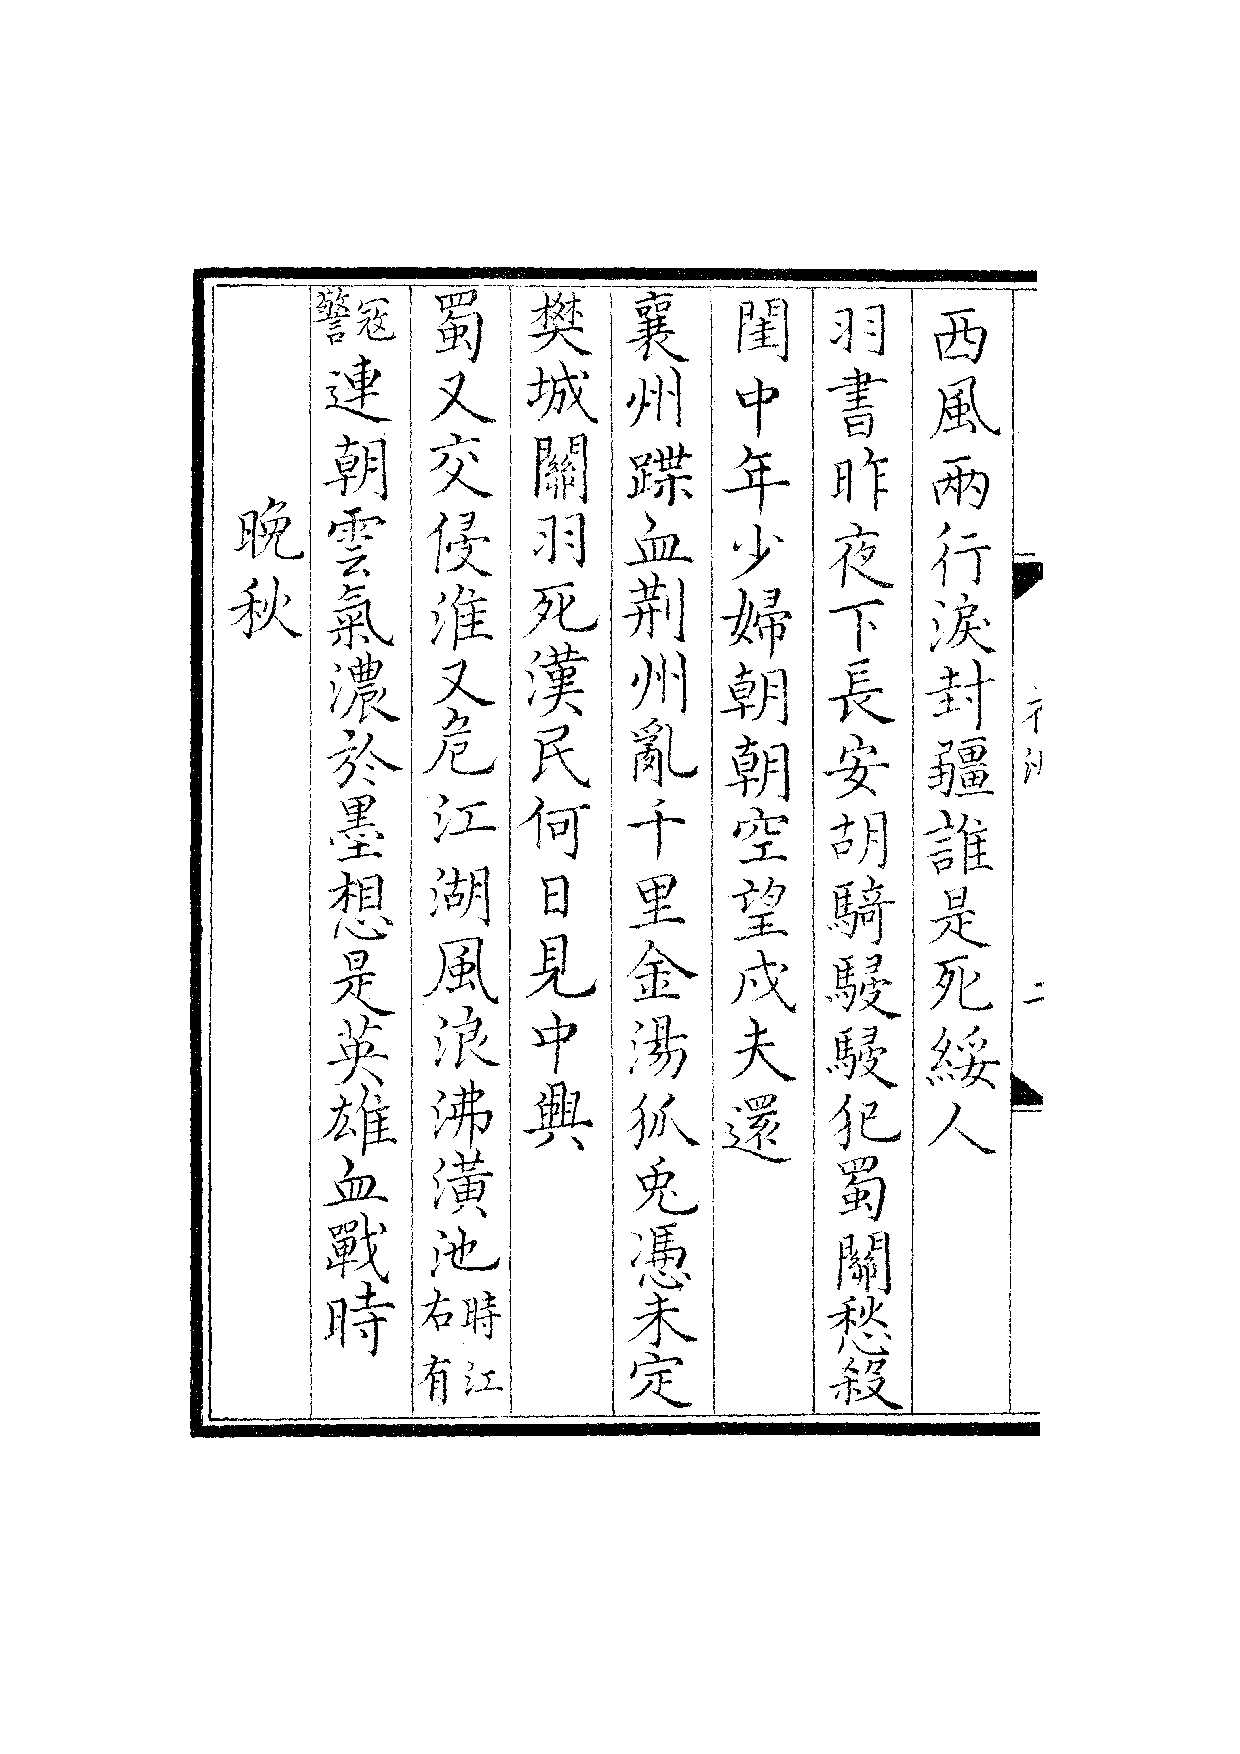 西風兩行淚封疆誰是死綏人
羽書昨夜下長安胡騎駸駸犯蜀關愁殺
閨中年少婦朝朝空望戍夫還
襄州蹀血荆州亂千里金湯狐兎憑未定
樊城關羽死漢民何日見中興
蜀又交侵淮又危江湖風浪沸潢池時江右有
寇警連朝雲氣濃於墨想是英雄血戰時
晩秋